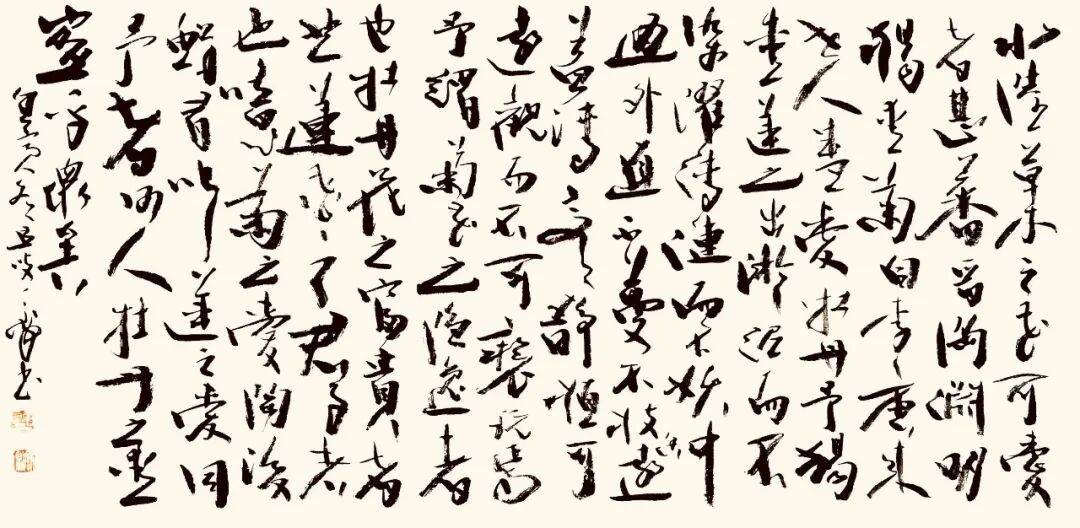 水陸草木之花可愛
者甚蕃晉陶淵明
獨愛菊自李唐來
世人盛愛牡丹予獨
愛蓮之出淤泥而不
染濯清漣而不妖中
通外直不蔓不枝香遠
益清亭亭靜植可
遠觀而不可褻玩焉
予謂菊花之隱逸者
也牡丹花之富貴者
也蓮花之君子者
也噫菊之愛陶後
鮮有聞蓮之愛同
予者何人牡丹之愛
宜乎衆矣
書